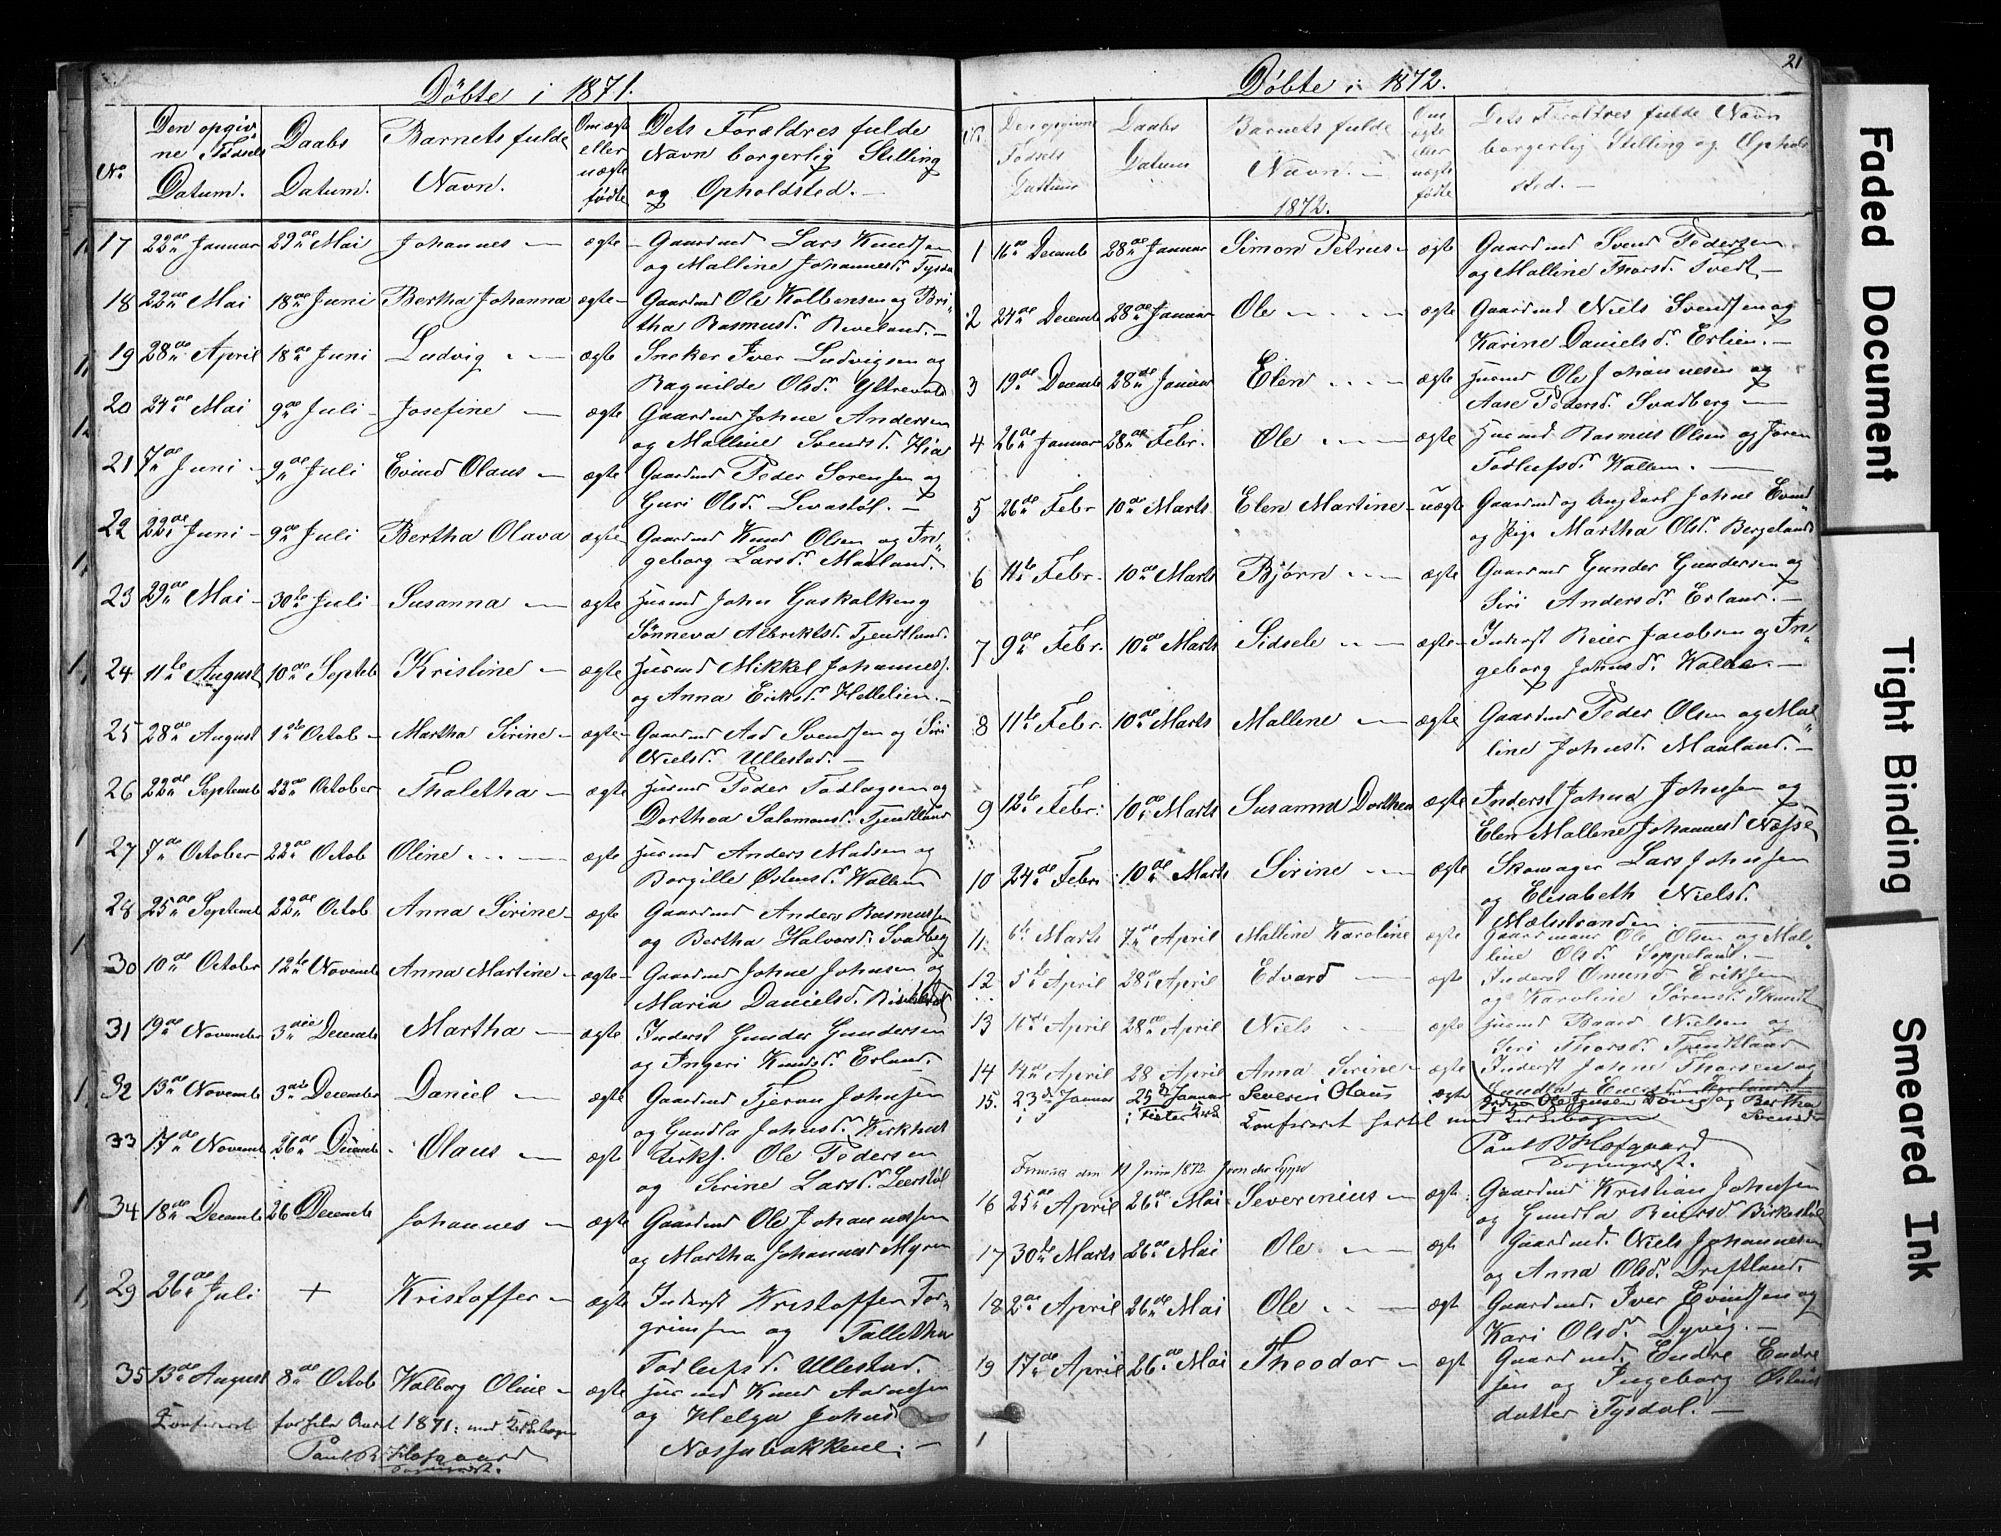 Döbte i 1871.
No. Den opgivne Fødsels Datum. Daabs Datum. Barnets fulde Navn. Om ægte eller uægte fødte Dets Forældres fulde Navn borgerlig Stilling og Opholdsted. —
17 22de Januar 29de Mai Johannes — ægte — Gaardmd Lars Knudsen
og Malline Johannesd. Tysda
18 22de Mai 18de Juni Bertha Johanna ægte — Gaardmd Ole Kolbensen og Bri-
tha Rasmusd. Reveland. —
19 28de April 18de Juni Ludvig — ægte Sneker Iver Ludvigsen og
Ragnilde Olsd. Yttrevold
20 24de Mai 9de Juli — Josefine — ægte Gaardmd Johne Andersen
og Malline Svendsd. Hia
21 7de Juni — 9de Juli Evind Olaus — ægte Gaardmd Peder Sørensen og
Guri Olsd. Livastøl. —
22 22de Juni — 9de Juli Bertha Olava ægte Gaardmd Knud Olsen og In-
geborg Larsd. Maaland.
23 29de Mai — 30te Juli Susanna — ægte Husmd John Gaskalkeng
Sönneva Albriktsd. Tjendtland.
24 11te August 10de Septeb Kristine — ægte Husmd Mikkel Johanness.
og Anna Eriksd. Hettelien. —
25 28de August 1ste Octob — Martha Sirine — ægte — Gaardmd Aad Svendsen og Siri
Nielsd. Ullestad. —
26 22de Septemb 22de October Thaletha — ægte Husmd Peder Todlagsen og
Dorthea Salomonsd. Tjendtland
27 7de October 22de Octob Oline — ægte Husmd Anders Madsen og
Borgille Østensd. Wallem
28 25de Septemb 22de Octob Anna Sirine — ægte Gaardmd Anders Rasmussen
og Bertha Halvorsd. Svadberg
30 10de October 12te Novemb Anna Martine — ægte — Gaardmd Johne Johnsen og
Maria Danielsd.
31 19de November 3die Decemb Martha — ægte Inderst Gunder Gundersen
og Ingeri Knudsd. Erland.
32 13de Novemb 3die December Daniel — ægte Gaardmd Tjeran Johnsen
og Gundla Johnsd. Kirkhus
33 17de Novemb 26de Decemb Olaus — ægt Kirks. Ole Pedersen
og Serine Larsd. Leerstøl
34 18de Decemb 26 Decemb Johannes — ægte Gaardmd Ole Johannessen
og Martha Johannesd Myren
29 26de Juli + Kristoffer — ægte Inderst Kristoffer Tor-
grimsen og Talletha
Todleifsd. Ullestad.
35 13de August 8de Octob Walborg Oline — ægte Husmd Knud Aanesen
og Helga Johnsd
Næssabakkene. —
Konfereret for hele Aaret 1871: med Kirkebogen
Paul R. Hofgaard
Sogneprest.
21
Döbte i 1872.
No. Den opgivne Fødsels Datum Daabs Datum Barnets fulde Navn. — Om ægte eller uægte fødte Dets Forældres fulde Navn borgerlig Stilling og Opholdsted. —
1872.
1 16de Decemb 28de Januar Simon Petrus — ægte Gaardmd Svend Pedersen
og Malline Thorsd. Tvedt —
2 24de Decemb 28de Januar Ole — ægte Gaardmd Niels Svendsen og
Karine Danielsd. Erlien. —
3 19de Decemb 28de Januar Elen — ægte Husmd Ole Johannesen og
Aase Pedersd. Svadberg —
4 26de Januar 28de Febr. Ole — ægte Husmd Rasmus Olsen og Joren
Todleifsd. Wallem. —
5 26de Febr 10de Marts Elen Martine — uægte Gaardmd og Ungkarl Johne Evind-
og Pige Martha Olsd. Bergeland
6 11te Febr. 10de Marts Bjørn — ægte Gaardmd Gunder Gundersen og
Siri Andersd. Erland. —
7 9de Febr. 10de Marts Sidsele — ægte — Inderst Reier Jacobsen og In-
geborg Johnsd. Walle. —
8 11te Febr. 10de Marts Mallene — ægte Gaardmd Peder Olsen og Mal-
line Johnsd. Maaland. —
9 12te Febr. 10de Marts Susanna Dorthea ægte Inderst Johne Johnsen og
Elen Mallene Johannesd Næsse
10 24de Febr. 10de Marts Sirine — ægte Skomager Lars Johnsen
og Elisabeth Nielsd.
Mælsstranden —
11. 6te Marts 7de April Malline Karoline ægte Gaardmand Ole Olsen og Mal-
line Olsd. Seppeland. —
12 5te April 28de April Edvard — ægte Inderst Omund Eriksen
og Karoline Sørensd.
13 11te April 28de April Niels — ægte Husmd Baard Nielsen og
Siri Thorsd. Tjendtland
14 14de April 28 April Anna Sirine — ægte Inderst Johne Thorsen og
15. 23de Januar 25de Januar Severin Olaus ægte Ole Jensen Dövig og Bertha
Svensd.
Konfereret hertil med Kirkebogen
Paul R Hofgaard
Sogneprest.
den 11 Juni 1872
16 25de April 26de Mai Severinius — ægt. Gaardmd Kristian Johnsen
og Gundla Reiersd. Birkestøl
17 30te Marts 26de Mai Ole. — ægt Gaardmd. Niels Johannesen
og Anna Olsd. Driftland.
18 2de April 26de Mai Ole — ægt Gaardmd. Iver Evindsen og
Kari Olsd. Dyvig. —
19 17de April 26de Mai Theodor — ægt Gaardmd. Endre Endre
sen og Ingeborg Østens
datter Tysdal. —
Faded Document
Tight Binding
Smeared Ink